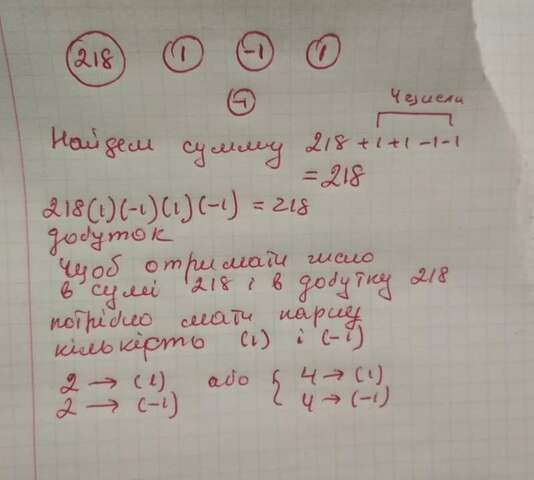 218 1 -1 1
-1
4 числа
Найдем сумму 218 + 1 + 1 - 1 - 1
= 218
218(1)(-1)(1)(-1) = 218
добуток
Щоб отримати число
в сумі 218 і в добутку 218
потрібно мати парну
кількість (1) і (-1)
2 → (1) або { 4 → (1)
2 → (-1) 4 → (-1)